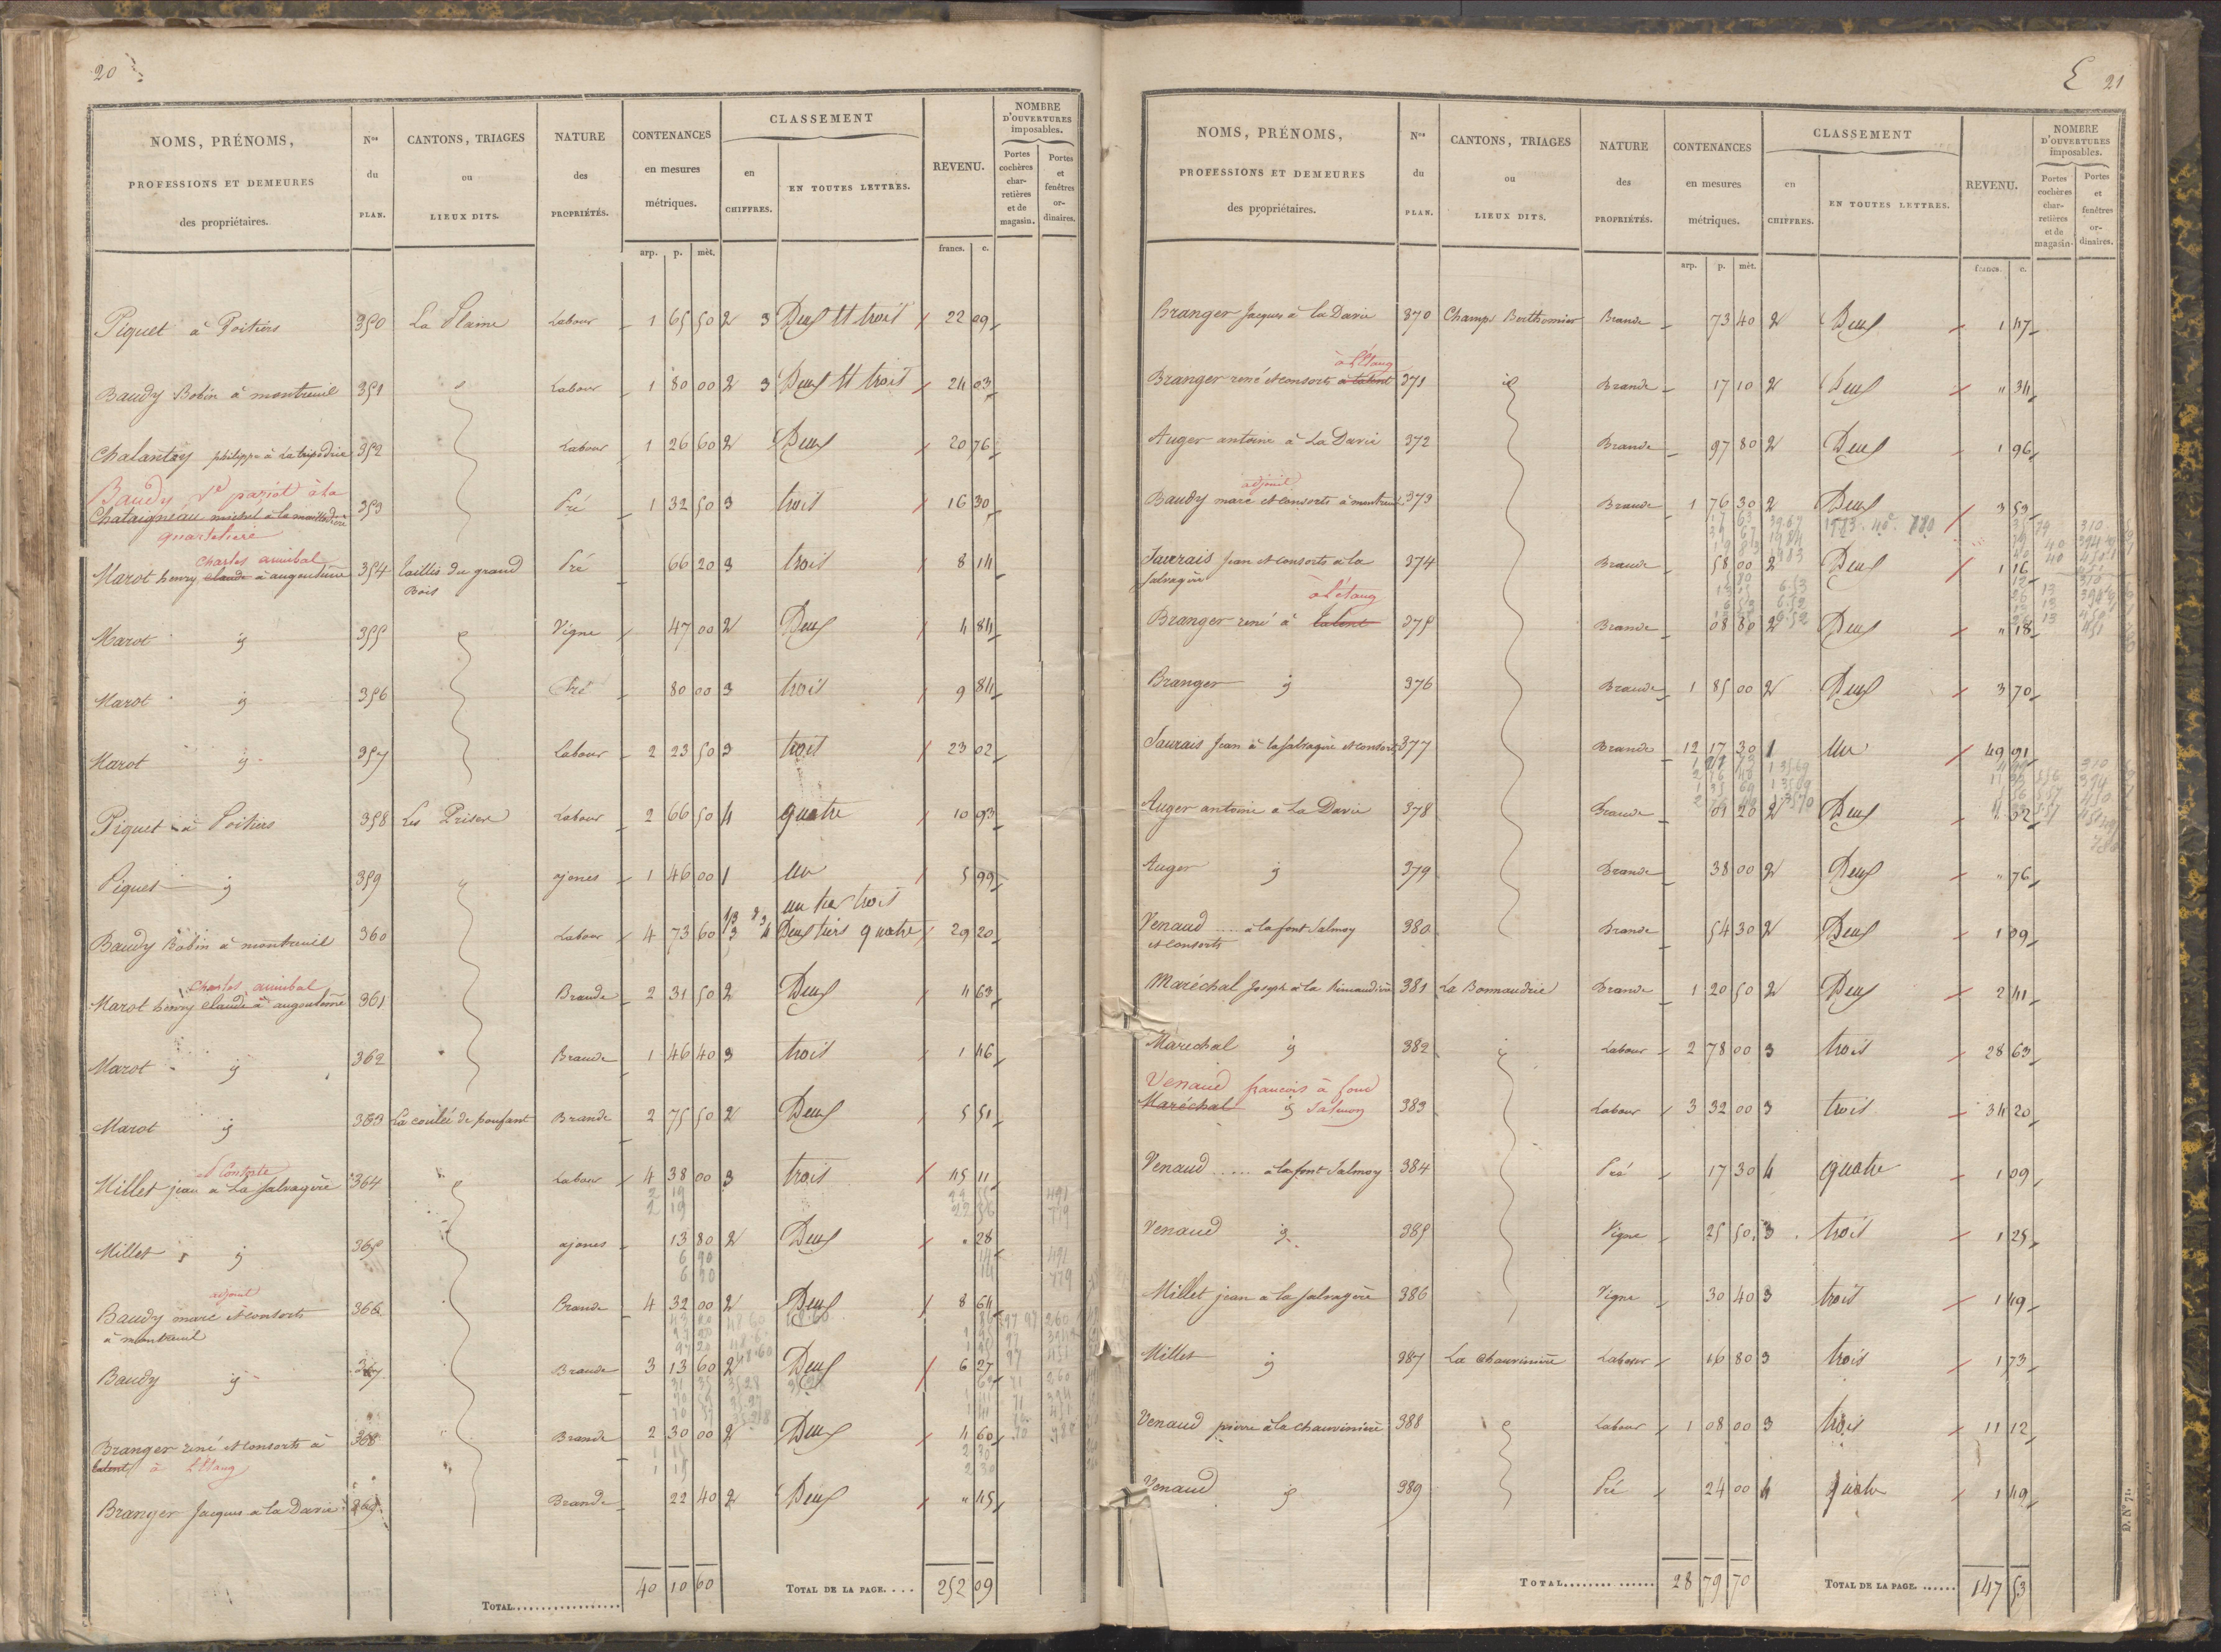 20
NOMS, PRÉNOMS, PROFESSIONS ET DEMEURES des propriétaires. Nos du PLAN. CANTONS, TRIAGES ou LIEUX DITS. NATURE des PROPRIÉTÉS. CONTENANCES en mesures métriques. CLASSEMENT en CHIFFRES. EN TOUTES LETTRES. REVENU. NOMBRE D'OUVERTURES imposables. Portes cochères charretières et de magasin. Portes et fenêtres ordinaires.
arp. p. mèt. francs. c.
Piquet à Poitiers 350 La Plaine Labour 1 65 50 2 3 Deux et trois 22 09
Baudy Bobin à montreuil 351 Labour 1 80 00 2 3 Deux et trois 24 03
Chalantay philippe à la tripodrie 352 Labour 1 26 60 2 Deux 20 76
Baudy Ve pariot à la
Chataigneau michel à la maillodrie 353 Pré 1 32 50 3 trois 16 30
quartelière
Charles annibal
Marot henry claude à angoulème 354 taillis du grand Bois Pré 66 20 3 trois 8 14
Marot id 355 Vigne 47 00 2 Deux 4 84
Marot id 356 Pré 80 00 3 trois 9 84
Marot id 357 Labour 2 23 50 3 trois 23 02
Piquet à Poitiers 358 Les Prises Labour 2 66 50 4 quatre 10 93
Piquet id 359 ajones 1 46 00 1 un 5 99
un tiers trois
Baudy Bobin à montreuil 360 Labour 4 73 60 1/3 3 2/3 4 Deux tiers quatre 29 20
Charles annibal
Marot henry claude à angoulème 361 Brande 2 31 50 2 Deux 4 63
Marot id 362 Brande 1 46 40 3 trois 1 46
Marot id 363 La coulée de poufant Brande 2 75 50 2 Deux 5 51
et Consorts
Millet jean à la Salvagère 364 Labour 4 38 00 3 trois 45 11
2 19
2 19
491
779
Millet id 365 ajones 13 80 2 Deux " 28
6 90 14 491
6 90 14 779
adjoint
Baudy marc et consorts 366 Brande 4 32 00 2 Deux 8 64
à montreuil
Baudy id 367 Brande 3 13 60 2 Deux 6 27
Branger rené et consorts à 368 Brande 2 30 00 2 Deux 4 60
talent à l'Etang
1 15 2 30
1 15 2 30
Branger Jacques à la Davie 369 Brande 22 40 2 Deux " 45
TOTAL 40 10 60 TOTAL DE LA PAGE. 252 09
E 21
NOMS, PRÉNOMS, PROFESSIONS ET DEMEURES des propriétaires. Nos du PLAN. CANTONS, TRIAGES ou LIEUX DITS. NATURE des PROPRIÉTÉS. CONTENANCES en mesures métriques. CLASSEMENT en CHIFFRES. EN TOUTES LETTRES. REVENU. NOMBRE D'OUVERTURES imposables. Portes cochères charretières et de magasin. Portes et fenêtres ordinaires.
arp. p. mèt. francs. c.
Branger Jacques à la Davie 370 Champs Berthomier Brande 73 40 2 Deux 1 47
à l'Etang
Branger rené et consorts à talent 371 id Brande 17 10 2 Deux " 34
Auger antoine à La Davie 372 Brande 97 80 2 Deux 1 96
adjoint
Baudy marc et consorts à montreuil 373 Brande 1 76 30 2 Deux 3 53
Saurais Jean et consorts à la 374 Brande 58 00 2 Deux 1 16
salvagère
à l'étang
Branger rené à talent 375 Brande 08 80 2 Deux " 18
Branger id 376 Brande 1 85 00 2 Deux 3 70
Saurais Jean à la salvagère et consorts 377 Brande 12 17 30 1 un 49 91
Auger antoine à La Davie 378 Brande 2 Deux
Auger id 379 Brande 38 00 2 Deux " 76
Venaud ..... à la font Salmoy 380 Brande 54 30 2 Deux 1 09
et consorts
Maréchal Joseph à la Rimaudière 381 La Bonnaudrie Brande 1 20 50 2 Deux 2 41
Maréchal id 382 id Labour 2 78 00 3 trois 28 63
Venaud francois à fond
Maréchal id Salmon 383 Labour 3 32 00 3 trois 34 20
Venaud ..... à la font Salmoy 384 Pré 17 30 4 quatre 1 09
Venaud id 385 Vigne 25 50 3 trois 1 25
Millet jean à la salvagère 386 Vigne 30 40 3 trois 1 49
Millet id 387 La Chauvinière Labour 16 80 3 trois 1 73
Venaud pierre à la chauvinière 388 Labour 1 08 00 3 trois 11 12
Venaud id 389 Pré 24 00 4 quatre 1 49
TOTAL 28 79 70 TOTAL DE LA PAGE. 147 53
D. N° 71.